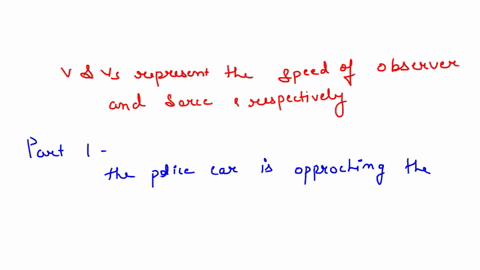 v & vs represent the speed of observer
and sorce respectively
Part 1 -
the police car is opproching the